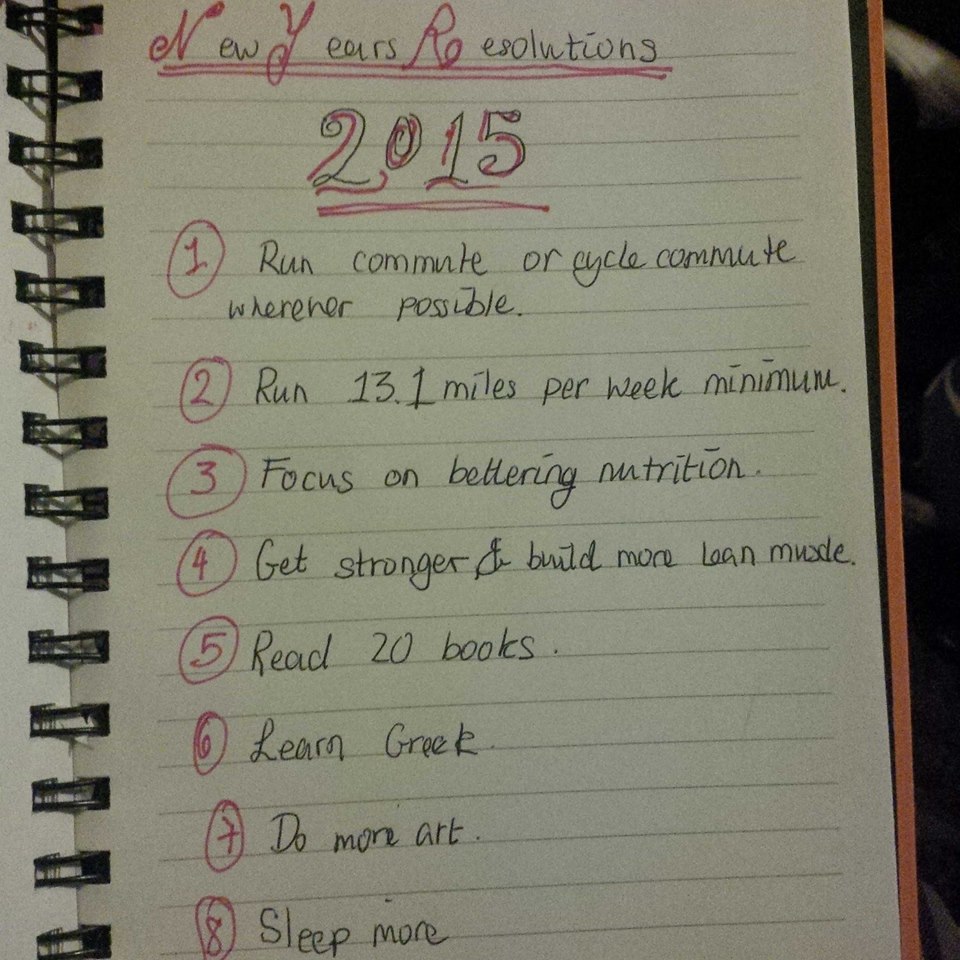 New Years Resolutions
2015
1 Run commute or cycle commute
wherever possible.
2 Run 13.1 miles per week minimum.
3 Focus on bettering nutrition.
4 Get stronger & build more lean muscle.
5 Read 20 books.
6 Learn Greek.
7 Do more art.
8 Sleep more